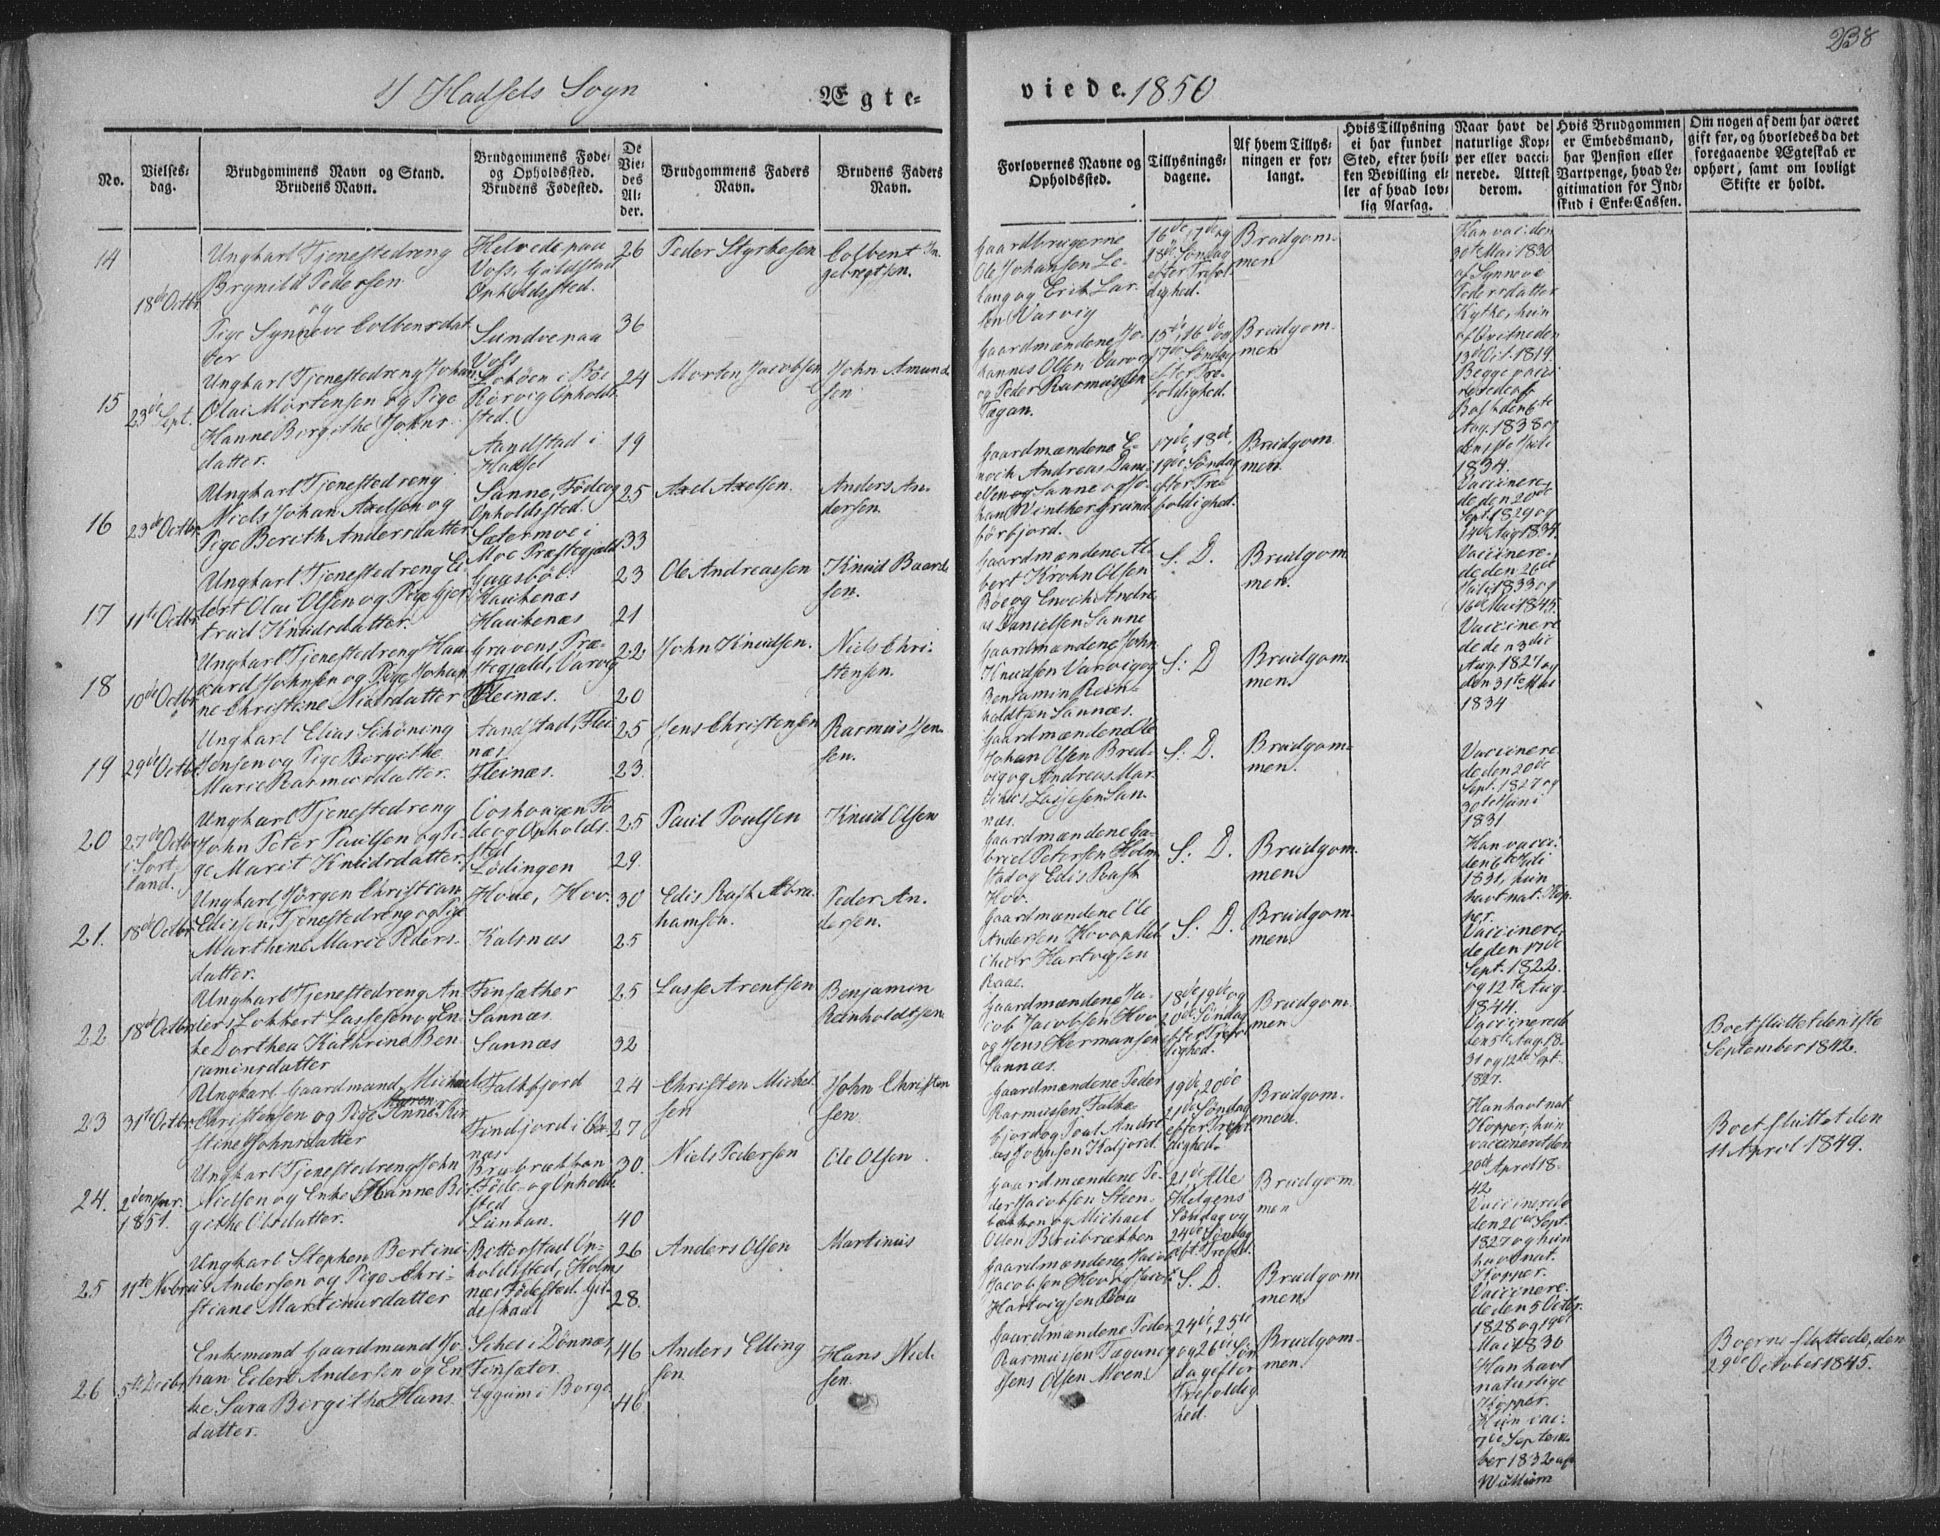 238
I Hadsels Sogn
Ægte-
viede. 1850
No.
Vielses-
dag.
Brudgommens Navn og Stand.
Brudens Navn.
Brudgommens Føde-
og Opholdssted.
Brudens Fødested.
De
Vie-
des
Al-
der.
Brudgommens Faders
Navn.
Brudens Faders
Navn.
Forlovernes Navne og
Opholdssted.
Tillysnings-
dagene.
Af hvem Tillys-
ningen er for-
langt.
Hvis Tillysning
ei har fundet
Sted, efter hvil-
ken Bevilling el-
ler af hvad lov-
lig Aarsag.
Naar havt de
naturlige Kop-
per eller vacci-
nerede. Attest
derom.
Hvis Brudgommen
er Embedsmand,
har Pension eller
Vartpenge, hvad Le-
gitimation for Ind-
skud i Enke-Cassen.
Om nogen af dem har været
gift før, og hvorledes da det
foregaaende Ægteskab er
ophørt, samt om lovligt
Skifte er holdt.
14
18de Octbr
Ungkarl Tjenestedreng
Brynild Pedersen
og
Pige Synneve Colbensdat
ter
Helvede paa
Voss, Guldstad
Opholdssted.
Sundve paa
Voss
26
36
Peder Styrkesen
Colbent In
gebregtsen.
Gaardbrugerne
Ole Johansen Le-
kang og Erik Lar
sen Varvig
16de, 17de og
18de Søndag
efter Trefol
dighed.
Brudgom-
men
Han vac: den
30te Mai 1830
af Synneve
Pedersdatter
Kythe, hun
af Qvitne den
13de Oct. 1819.
15
23de Sept.
Ungkarl Tjenestedreng Johan
Olai Mortensen og Pige
Hanne Birgithe Johns-
datter.
i Bø
Rørvig Opholds
sted.
Aandstad i
Hadsel
24
19
Morten Jacobsen
John Amund
sen
Gaardmændene Jo-
hannes Olsen Varvig
og Peder Rasmussen
Tægan.
15de, 16de og
17de Søndag
efter Tre-
foldighed.
Brudgom
men
Begge vacci
nerede af
Bast den 6te
Aug. 1838 og
den 1ste Juli
1834.
16
23de Octbr
Ungkarl Tjenestedreng
Niels Johan Axelsen og
Pige Berith Andersdatter
Sanne, Føde og
Opholdssted.
Sætermoe i
Moe Præstegjeld
25
33
Axel Axelsen.
Anders An-
dersen.
Gaardmændene E-
noch Andreas Dani
elsen Sanne og Jo-
han Winther Grund
førfjord.
17de, 18de,
19de Søndag
efter Tre-
foldighed.
Brudgom
men.
Vaccinere-
de den 20de
Sept. 1829 og
14de Aug 1834.
17
11te Octbr
Ungkarl Tjenestedreng Ei
lert Olai Olsen og Pige Gjer
trud Knudsdatter.
Gaasbøl
Haukenæs
Haukenæs
23
21
Ole Andreassen
Knud Baard
sen.
Gaardmændene Al-
bert Krohn Olsen
Bøe og Enoch Andre
as Danielsen Sanne
S. D.
Brudgom
men.
Vaccinere-
de den 26de
Juli 1833 og
16de Mai 1845.
18
10de Octbr
Ungkarl Tjenestedreng Haa
vard Johnsen og Pige Johan
ne Christine Nielsdatter
Gravens Præ-
stegjeld, Varvig
Fleinæs.
22
20
John Knudsen.
Niels Chri-
stensen.
Gaardmændene John
Knudsen Varvig og
Benjamin Rein-
holdtsen Sannæs.
S: D
Brudgom
men.
Vaccinere
de den 3die
Aug. 1827 og
den 31te Mai
1834
19
29de Octbr
Ungkarl Elias Schøning
Jensen og Pige Birgithe
Marie Rasmusdatter.
Aandstad, Flei
næs
Fleinæs.
25
23.
Jens Christensen
Rasmus Jen
sen.
Gaardmændene Ole
Johan Olsen Bred-
vig og Andreas Mar.
San-
næs.
S. D.
Brudgom-
men.
Vaccinere
de den 20de
Sept. 1827 og
30te Juni
1831
20
27de Octbr
i Sort-
land.
Ungkarl Tjenestedreng
John Peter Paulsen og Pi-
ge Marit Knudsdatter.
Fø-
de og Opholds
sted
Lødingen
25
29.
Paul Poulsen
Knud Olsen
Gaardmændene Ga-
briel Petersen Holm
stad og Edis Rask
Hov.
S: D.
Brudgom
men.
Han vacci:
den 6te Juli
1831, hun
havt nat. Kop
per.
21.
18de Octbr
Ungkarl Jørgen Christian
Edissen, Tjenestedreng og Pige
Marthine Marie Peders-
datter.
Hove, Hov.
Kalsnæs
30
25
Edis Rask Abra
hamsen.
Peder An
dersen.
Gaardmændene Ole
Andersen Hov og Mel
chior Hartvigsen
Raae.
S. D.
Brudgom
men.
Vaccinere,
de den 17de
Sept. 1822.
og 12te Aug.
1844.
22
18de Octbr
Ungkarl Tjenestedreng An-
ders Lokkert Lassesen og En-
ke Dorthea Kathrine Ben-
jaminsdatter
Finsæther
Sannæs.
Sannæs
25
32
Lasse Arentsen
Benjamin
Reinholdtsen
Gaardmændene Ja-
cob Jacobsen Hov
og Jens Hermansen
Sannæs.
18de, 19de og
20de Søndag
efter Trefol
dighed.
Brudgom
men
Vaccinerede
den 5te Aug. 18-
31 og 12te Sept.
1827.
Boet sluttet den 1ste
September 1842.
23
31te Octbr
Ungkarl Gaardmand Michael
Christensen og Pige Hanne
Maren Kir
stine Johnsdatter
Falkfjord
Findfjord i Øx-
næs
24
27
Christen Michel
sen
John Christen
sen.
Gaardmændene Peder
Rasmussen Falke-
fjord og Joal Andre
as Johnsen Kalfjord
19de, 20de
21de Søndag
efter Trefol
dighed.
Brudgom-
men.
Han havt nat
Kopper, hun
vaccineret den
20de April 18-
42
24.
2den Jnr.
1851.
Ungkarl Tjenestedreng John
Nielsen og Enke Hanne Bir-
githe Olsdatter.
Brubrækken
Føde- og Opholds
sted
Lunkan.
30.
40
Niels Pedersen
Ole Olsen.
Gaardmændene Pe-
der Jacobsen Steen-
bakken og Michael
Olsen Brubrækken
21de Alle
Helgens
Søndag og
24de Søndag
eft. Trefold.
Brudgom
men
Vaccinerede
den 20de Sept.
1827 og hun
havt nat.
Kopper.
Boet sluttet den
11 April 1849.
25
11te Nvbr
Ungkarl Stephen Bertini-
us Andersen og Pige Chri-
stiane Martinusdatter
Bitterstad Op-
holdssted, Holm
næs Fødested. Gil-
deskaal
26
28.
Anders Olsen
Martinus
Gaardmændene Jacob
Jacobsen Hov og Jacob
Hartvigsen Roa
S. D.
Brudgom
men.
Vaccinere-
de den 5 Octbr.
1828 og 19de
Mai 1830
26
5te Decbr
Enkemand Gaardmand Jo-
han Eilert Andersen og En
ke Sara Birgithe Hans
datter.
i Dønnæs,
Finsæter.
Eggum i Borge
46
46
Anders Elling
sen
Hans Niel
sen.
Gaardmændene Peder
Rasmussen Tægan og
Jens Olsen Moen
24de, 25de
og 26de Søn
dag efter
Trefoldig
hed.
Brudgom-
men.
Han havt
naturlige
Kopper.
Hun vac:
7de Septem
ber 1832 af
Boerne sluttede den
29de October 1845.